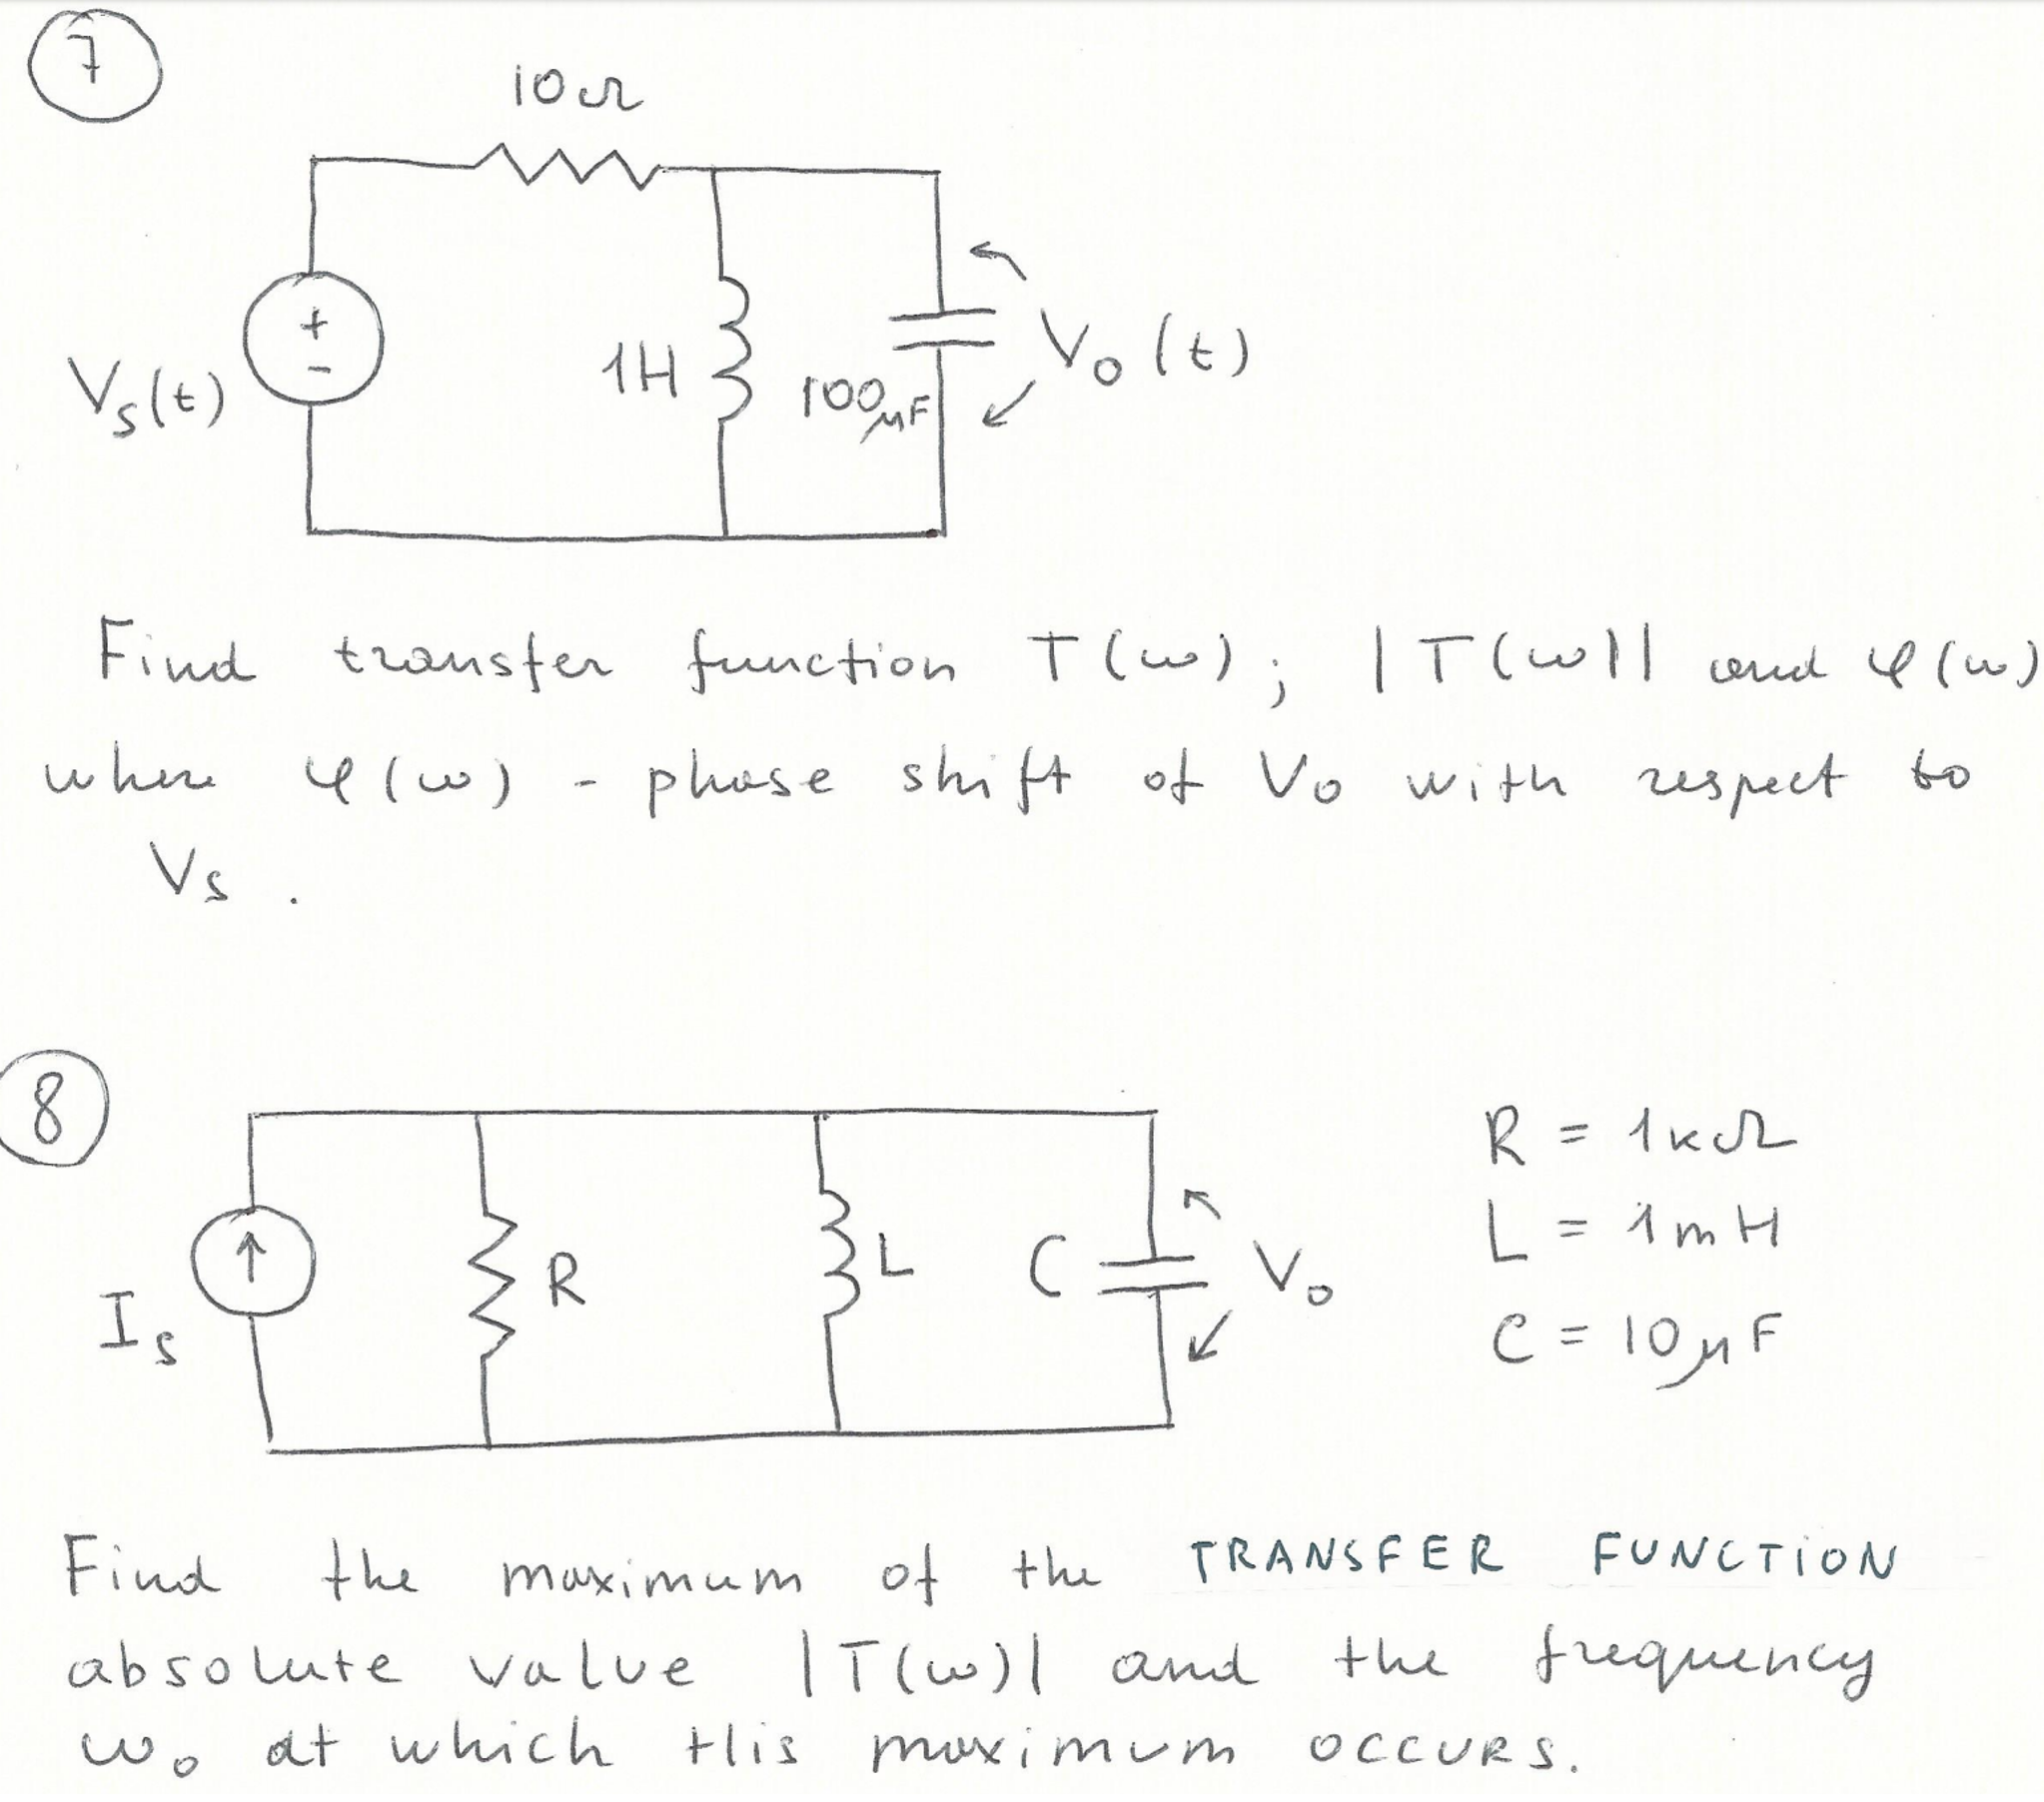 7
10Ω
Vs(t)
+
-
1H
100μF
Vo(t)
Find transfer function T(ω); |T(ω)| and φ(ω)
where φ(ω) - phase shift of Vo with respect to
Vs.
8
Is
R
L
C
Vo
R = 1kΩ
L = 1mH
C = 10μF
Find the maximum of the TRANSFER FUNCTION
absolute value |T(ω)| and the frequency
ωo at which this maximum occurs.